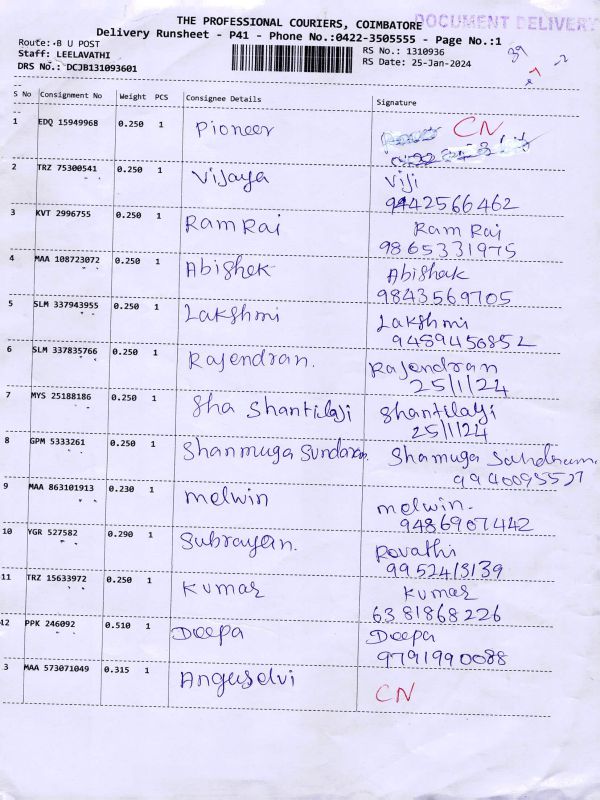 THE PROFESSIONAL COURIERS, COIMBATORE
DOCUMENT DELIVERY
Delivery Runsheet - P41 - Phone No.:0422-3505555 - Page No.:1
Route: B U POST
Staff: LEELAVATHI
DRS No.: DCJB131093601
RS No.: 1310936
RS Date: 25-Jan-2024
39
S No Consignment No Weight PCS Consignee Details Signature
1 EDQ 15949968 0.250 1 Pioneer CN
2 TRZ 75300541 0.250 1 Vijaya Viji
9442566462
3 KVT 2996755 0.250 1 Ram Rai Ram Rai
9865331975
4 MAA 108723072 0.250 1 Abishek Abishak
9843569705
5 SLM 337943955 0.250 1 Lakshmi Lakshmi
9489456852
6 SLM 337835766 0.250 1 Rajendran. Rajendran
25/1/24
7 MYS 25188186 0.250 1 Sha Shantilaji Shantilaji
25/1/24
8 GPM 5333261 0.250 1 Shanmuga Sundaram Shamuga
9940095527
9 MAA 863101913 0.230 1 Melwin Melwin.
9486907442
10 YGR 527582 0.290 1 Subrayan. Revathi
9952413139
11 TRZ 15633972 0.250 1 Kumar Kumar
6381868226
12 PPK 246092 0.510 1 Deepa Deepa
9791990088
3 MAA 573071049 0.315 1 Anguselvi CN